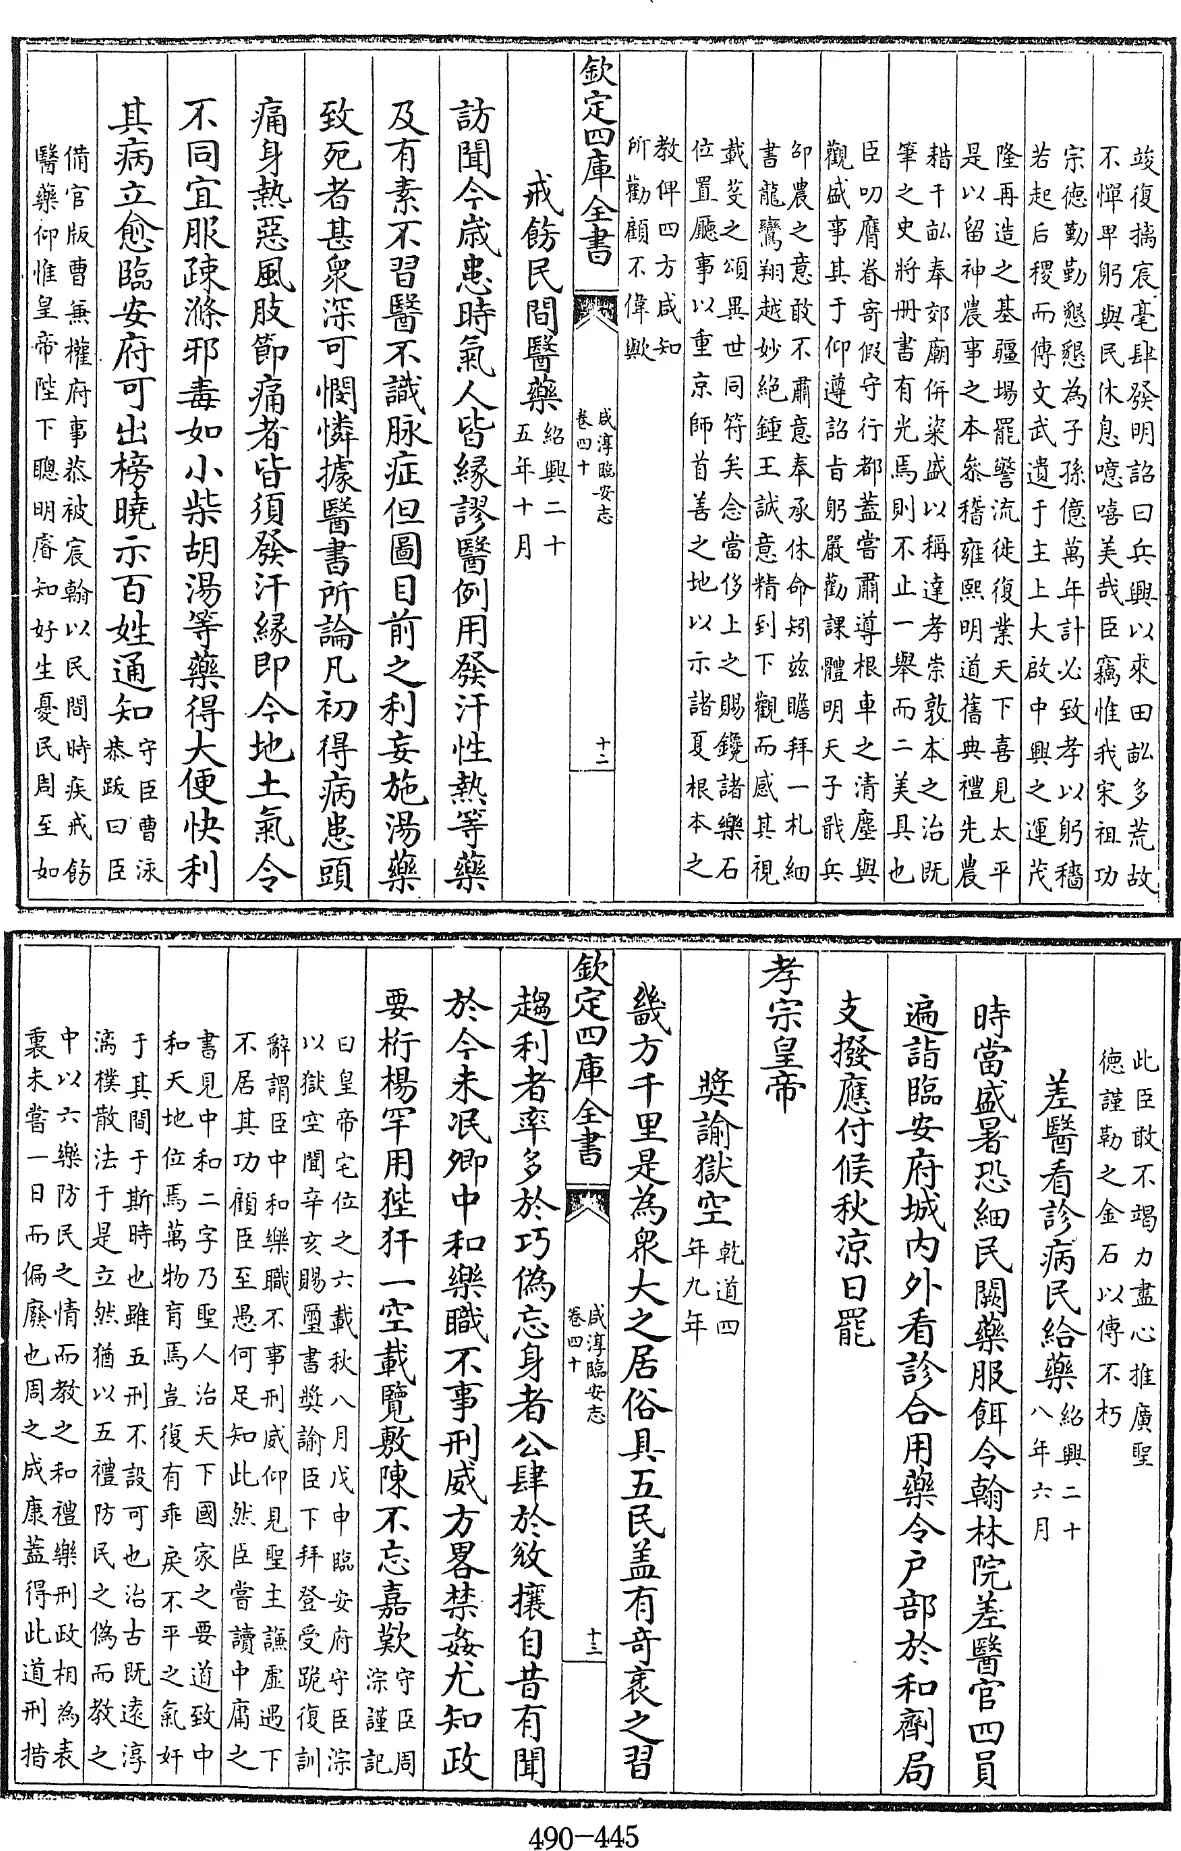 竣復摛宸毫肆發明詔曰兵興以來田畝多荒故
不憚卑躬與民休息噫嘻美哉臣竊惟我宋祖功
宗德勤勤懇懇為子孫億萬年計必致孝以躬穡
若起后稷而傳文武遺于主上大啟中興之運茂
隆再造之基疆場罷警流徙復業天下喜見太平
是以留神農事之本叅稽雍熙明道舊典禮先農
耤千畝奉郊廟併粢盛以稱達孝崇敦本之治既
筆之史將冊書有光焉則不止一舉而二美具也
臣叨膺眷寄假守行都蓋嘗肅導根車之清塵與
觀盛事其于仰遵詔旨躬嚴勸課體明天子戢兵
卹農之意敢不肅意奉承休命矧兹瞻拜一札細
書龍鸞翔越妙絕鍾王誠意精到下觀而感其視
載芟之頌異世同符矣念當侈上之賜鑱諸樂石
位置廳事以重京師首善之地以示諸夏根本之
教俾四方咸知
所勸顧不偉歟
欽定四庫全書
咸淳臨安志
卷四十
十二
戒飭民間醫藥
紹興二十
五年十月
訪聞今歳患時氣人皆緣謬醫例用發汗性熱等藥
及有素不習醫不識脉症但圖目前之利妄施湯藥
致死者甚衆深可憫憐據醫書所論凡初得病患頭
痛身熱惡風肢節痛者皆須發汗緣即今地土氣令
不同宜服疎滌邪毒如小柴胡湯等藥得大便快利
其病立愈臨安府可出榜曉示百姓通知
守臣曹泳
恭跋曰臣
備官版曹兼權府事恭被宸翰以民間時疾戒飭
醫藥仰惟皇帝陛下聰明睿知好生憂民周至如
此臣敢不竭力盡心推廣聖
德謹勒之金石以傳不朽
差醫看診病民給藥
紹興二十
八年六月
時當盛暑恐細民闕藥服餌令翰林院差醫官四員
遍詣臨安府城內外看診合用藥令戶部於和劑局
支撥應付候秋凉日罷
孝宗皇帝
奬諭獄空
乾道四
年九年
畿方千里是為衆大之居俗具五民盖有奇衺之習
欽定四庫全書
咸淳臨安志
卷四十
十三
趨利者率多於巧偽忘身者公肆於敓攘自昔有聞
於今未冺卿中和樂職不事刑威方畧禁姦尤知政
要桁楊罕用狴犴一空載覽敷陳不忘嘉歎
守臣周
淙謹記
曰皇帝宅位之六載秋八月戊申臨安府守臣淙
以獄空聞辛亥賜璽書奬諭臣下拜登受跪復訓
辭謂臣中和樂職不事刑威仰見聖主謙虛遇下
不居其功顧臣至愚何足知此然臣嘗讀中庸之
書見中和二字乃聖人治天下國家之要道致中
和天地位焉萬物育焉豈復有乖戾不平之氣奸
于其間于斯時也雖五刑不設可也治古既遠淳
漓樸散法于是立然猶以五禮防民之偽而教之
中以六樂防民之情而教之和禮樂刑政相為表
裏未嘗一日而偏廢也周之成康蓋得此道刑措
490-445